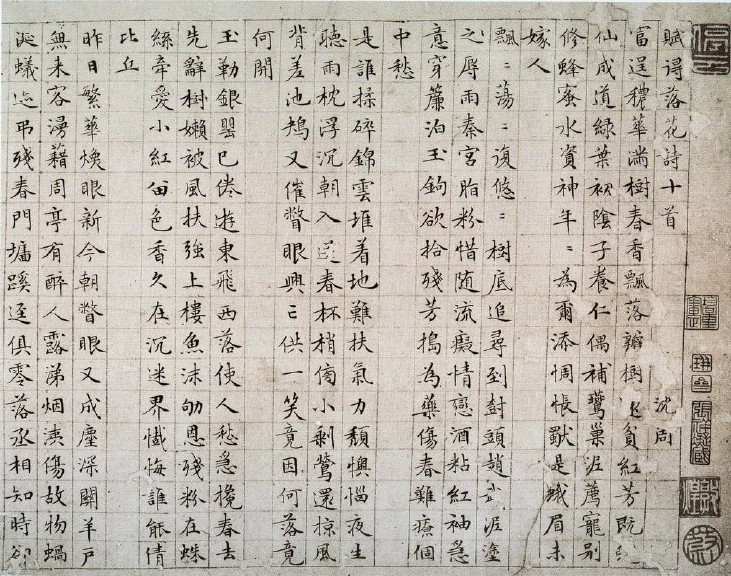 賦得落花詩十首 沈周
富逞穠華滿樹春香飄落瓣樹還貧紅芳既蛻
仙成道綠葉初陰子養仁偶補鶯巢泥薦寵別
修蜂蜜水資神年〻為爾添惆悵是蛾眉未
嫁人
飄〻蕩〻復悠〻樹底追尋到樹頭趙武泥塗
之辱雨秦宮脂粉惜隨流癡情戀酒粘紅袖急
意穿簾泊玉鉤欲拾殘芳搗為藥傷春難療個
中愁
是誰揉碎錦雲堆着地難扶氣力頹懊惱夜生
聽雨枕浮沉朝入送春杯梢傍小剩鶯還掠風
背差池鴆又催瞥眼興亡供一笑竟因何落竟
何開
玉勒銀罌已倦遊東飛西落使人愁急攙春去
先辭樹懶被風扶強上樓魚沫劬恩殘粉在蛛
絲牽愛小紅留色香久在沉迷界懺悔誰能倩
比丘
昨日繁華煥眼新今朝瞥眼又成塵深關羊戶
無來客漫藉周亭有醉人露涕烟洟傷故物蝸
涎蟻迹弔殘春門墻蹊逕俱零落丞相知時卻